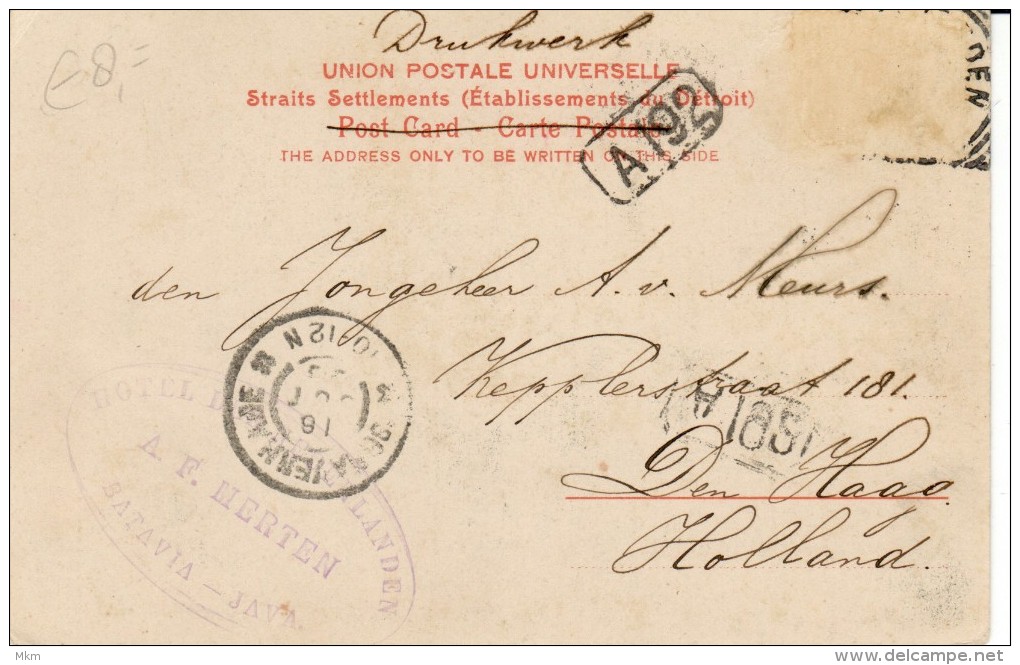 Drukwerk
€8,=
UNION POSTALE UNIVERSELLE
Straits Settlements (Établissements du Détroit)
Post Card - Carte Postale
THE ADDRESS ONLY TO BE WRITTEN ON THIS SIDE
DEN
A 192
den Jongeheer A. v. Meurs.
Kepplerstraat 181.
Den Haag
Holland.
'SGRAVENHAGE
10-12N
18
HOTEL D LANDEN
A. F. MERTEN
BATAVIA — JAVA.
Mkm
www.delcampe.net